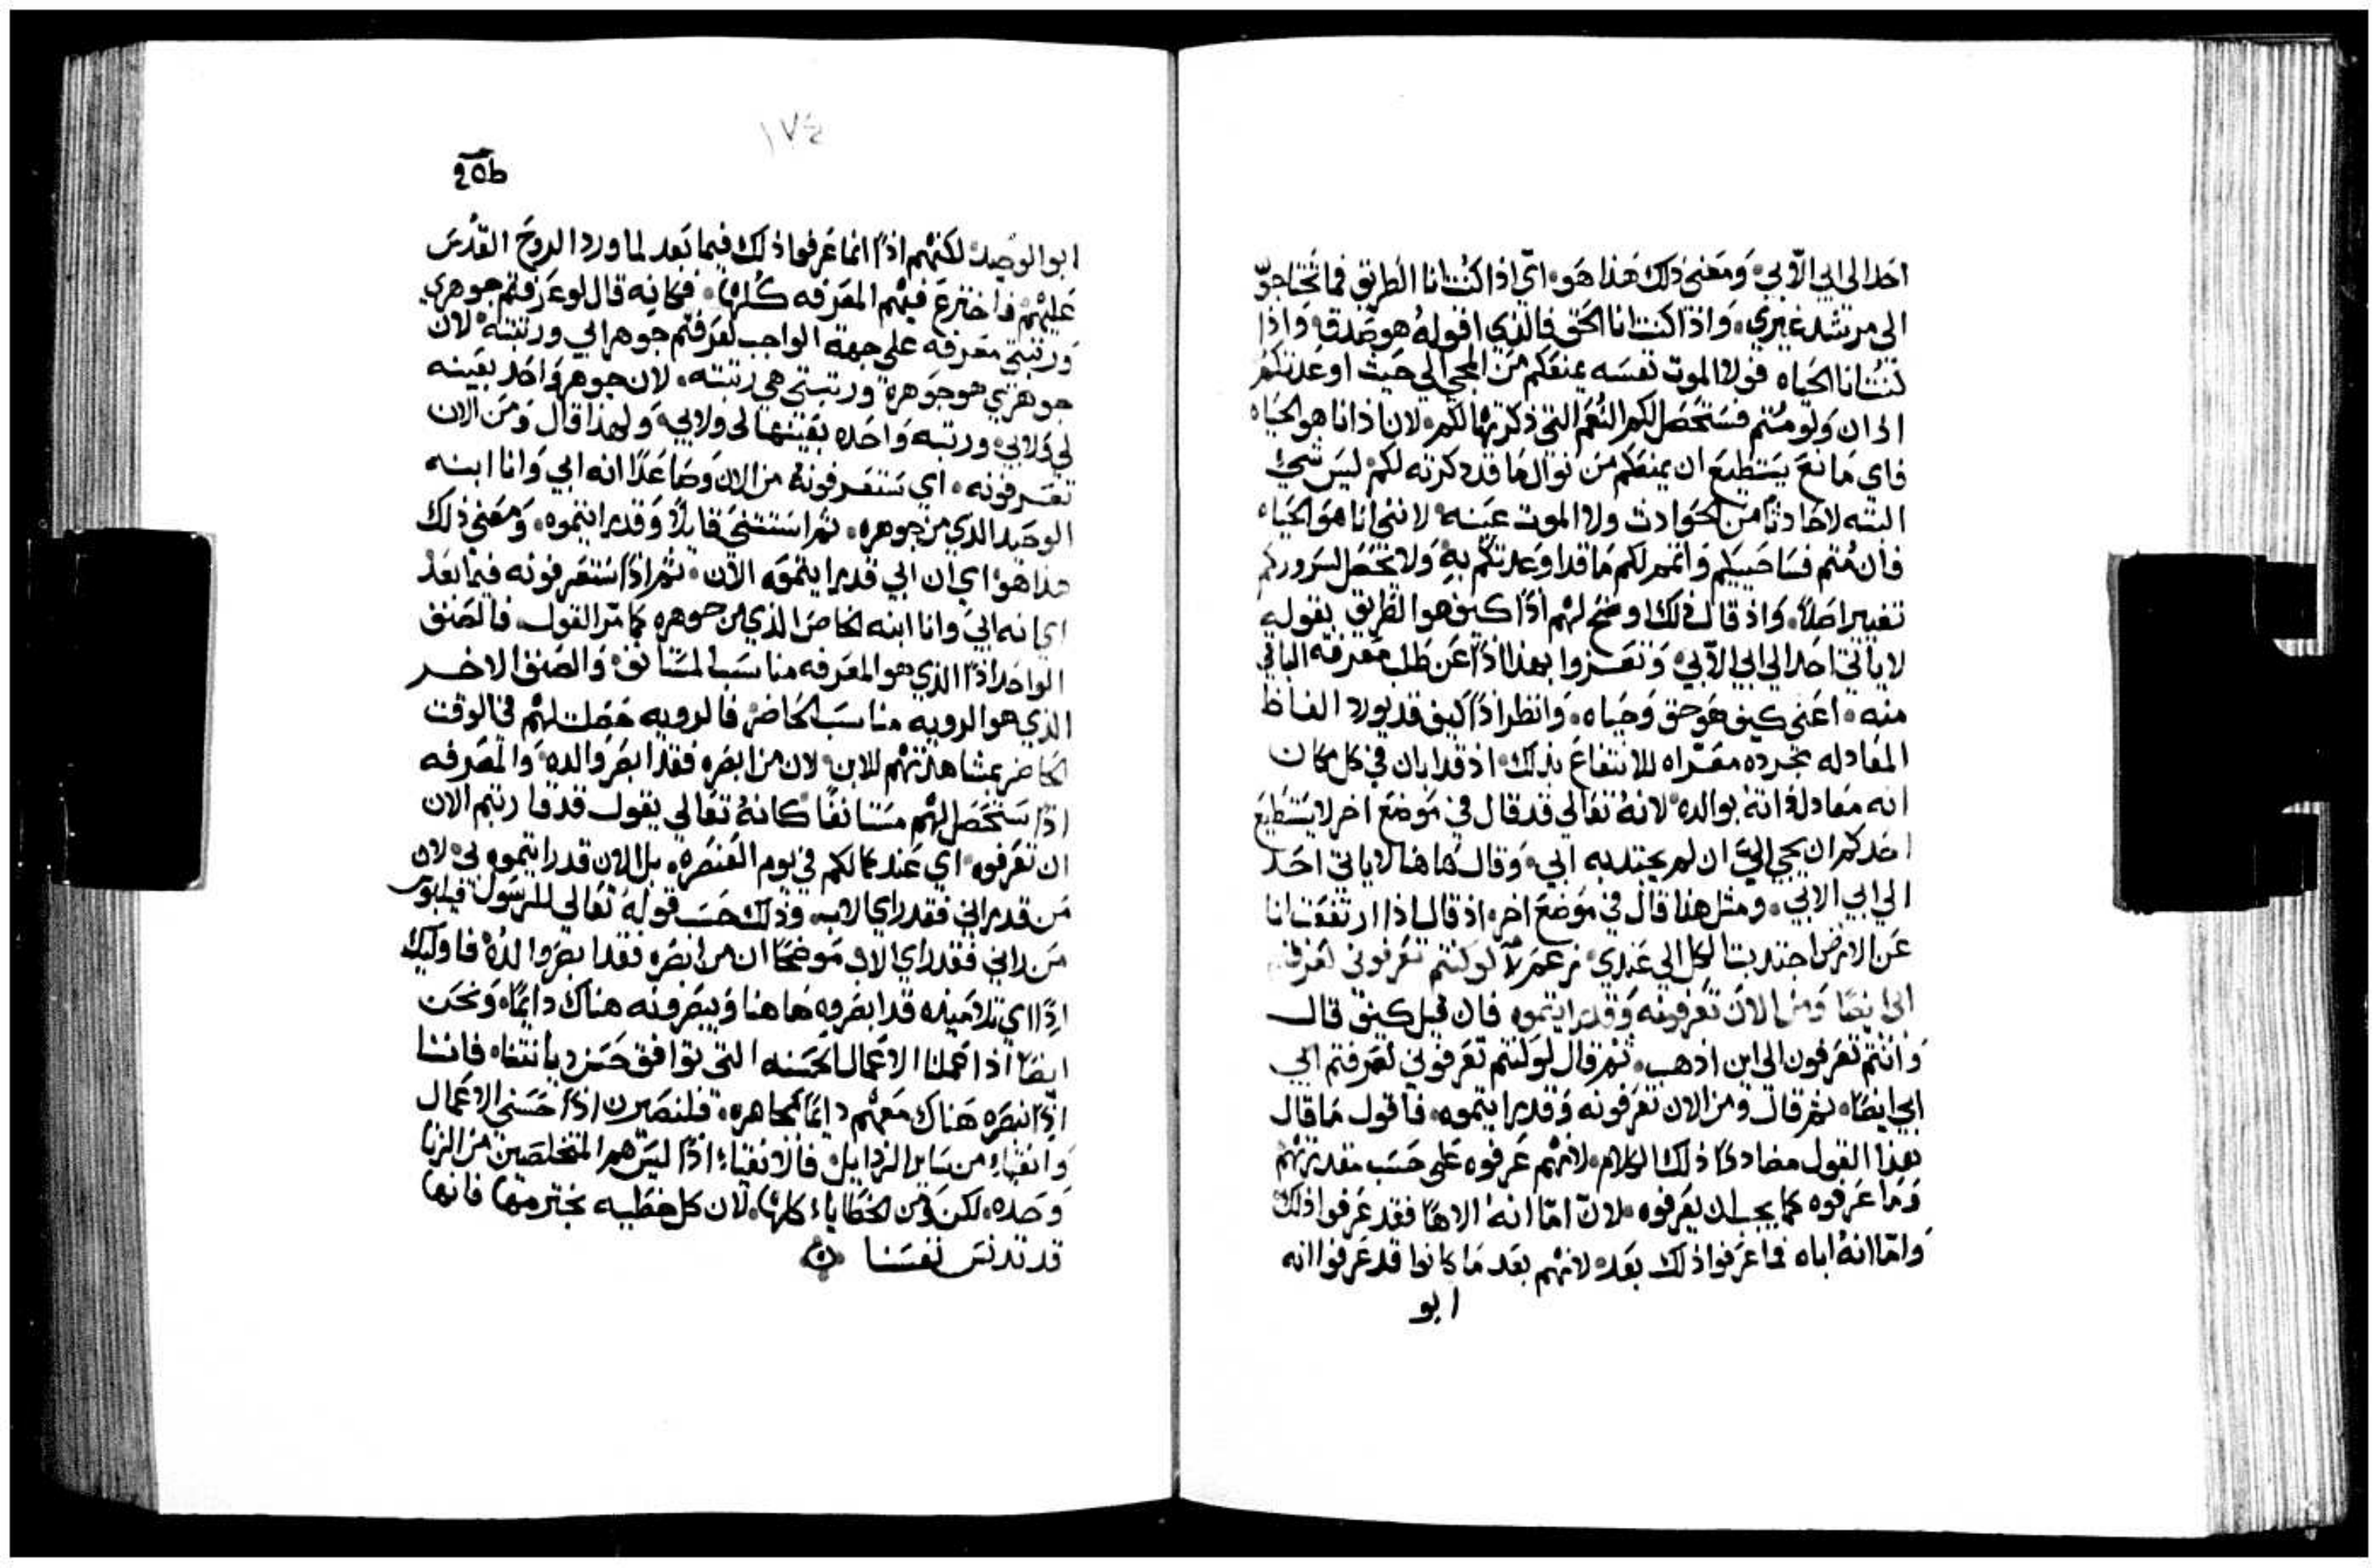 احد الى ابي الا بي ومعنى ذلك هذا هو اي اذا كنت انا الطريق فما تحتاجوا
الى مرشد غيري واذا كنت انا الحق فالذي اقوله هو صدق واذا
كنت انا الحياه فولا الموت نفسه يمنعكم من المجي الي حيث اوعدتكم
اذا ان ولو متم فستحصل لكم النعم التي ذكرتها لكم لان اذ انا هو الحياه
فاي مانع يستطيع ان يمنعكم من نوال ما قد ذكرته لكم ليس شيء
البته لا حادثا من الحوادث ولا الموت عينه لانني انا هو الحياه
فان متم فساحييكم واتمم لكم ما قد اوعدتكم به ولا يحصل لسروركم
تغيير اصلا واذ قال ذلك اوضح لهم اذا كيف هو الطريق بقوله
لا ياتي احد الى ابي الا بي وتعزوا بهذا اذا عن طلب معرفة الباقي
منه اعني كيف هو حق وحياه وانظر اذا كيف قد يورد الفاظ
المعادله مجرده معراه للانتفاع بذلك اذ قد ابان في كل مكان
انه معادلة انه بوالده لانه تعالي قد قال في موضع اخر لا يستطيع
احدكم ان يجي الي ان لم يجتذبه ابي وقال هاهنا لا ياتي احد
الي ابي الا بي ومثل هذا قال في موضع اخر اذ قال اذا ارتفعت انا
عن الارض اجتذبت الكل الي عندي لو كنتم تعرفوني لعرفتم
ابي ايضا ومن الان تعرفونه وقد رايتموه فان قيل كيف قال
وانتم تعرفون الى اين اذهب ثم قال لو كنتم تعرفوني لعرفتم ابي
ابي ايضا ثم قال ومن الان تعرفونه وقد رايتموه فاقول ما قال
هذا القول مضاددا ذلك الكلام لانهم عرفوه على حسب مقدرتهم
وما عرفوه كما يجب ان يعرفوه لان اما انه الاها فقد عرفوا ذلك
واما انه اباه فما عرفوا ذلك بعد لانهم بعد ما كانوا قد عرفوا انه
ابو
١٧٤
ابو الوحيد لكنهم اذا انما عرفوا ذلك فيما بعد لما ورد الروح القدس
عليهم فاخترع فيهم المعرفه كلها فكانه قال لو عرفتم جوهري
ورتبتي معرفه علي جهة الواجب لعرفتم جوهر ابي ورتبته لان
جوهري هو جوهره ورتبتي هي رتبته لان جوهر واحد بعينه
لي ولابي ورتبه واحده بعينها لي ولابي ولهذا قال ومن الان
تعرفونه اي ستعرفونه من الان وصاعدا انه ابي وانا ابنه
الوحيد الذي من جوهره ثم استتنى قايلا وقد رايتموه ومعني ذلك
هذا هو اي ان ابي قد رايتموه الان ثم اذا ستعرفونه فيما بعد
اي انه ابي وانا ابنه الخاص الذي من جوهره كما مر القول فالصنف
الواحد اذا الذي هو المعرفه مناسب المستانف والصنف الاخر
الذي هو الرويه مناسب الحاضر فالرويه حصلت لهم في الوقت
الحاضر بمشاهدتهم للابن لان من ابصره فقد ابصر والده والمعرفه
اذا ستحصل لهم مستانفا كانه تعالي يقول قد قاربتم الان
ان تعرفوه اي عند كمالكم في يوم العنصره بل الان قد رايتموه لي لان
من قد راني فقد راي الاب وذلك حسب قوله تعالي للرسول فيلبوس
من راني فقد راي الاب موضحا ان من ابصره فقد ابصر والده فاوليك
اذا اي تلاميذه قد ابصروه هاهنا ويبصرونه هناك دايما ونحن
ايضا اذا عملنا الاعمال الحسنه التي توافق حسن ديانتنا فاننا
اذا نبصره هناك معهم دايما مجاهره فلنصيرن اذا حسني الاعمال
وانقياء من ساير الرذايل فالانقياء اذا ليس هم المتخلصين من الزنا
وحده لكن ومن الخطاياء كلها لان كل خطيه نجترمها فانها
قد تدنس نفسنا